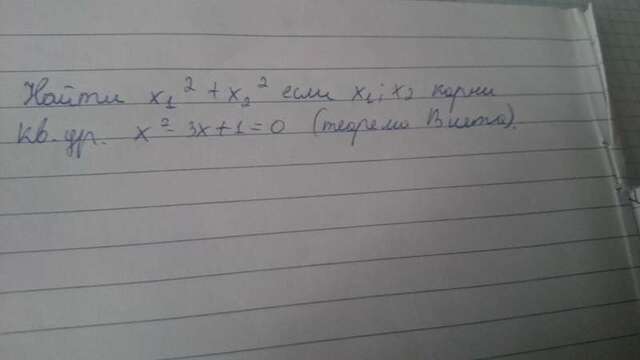 Найти x₁² + x₂² если x₁; x₂ корни
кв. ур. x² - 3x + 1 = 0 (теорема Виета).